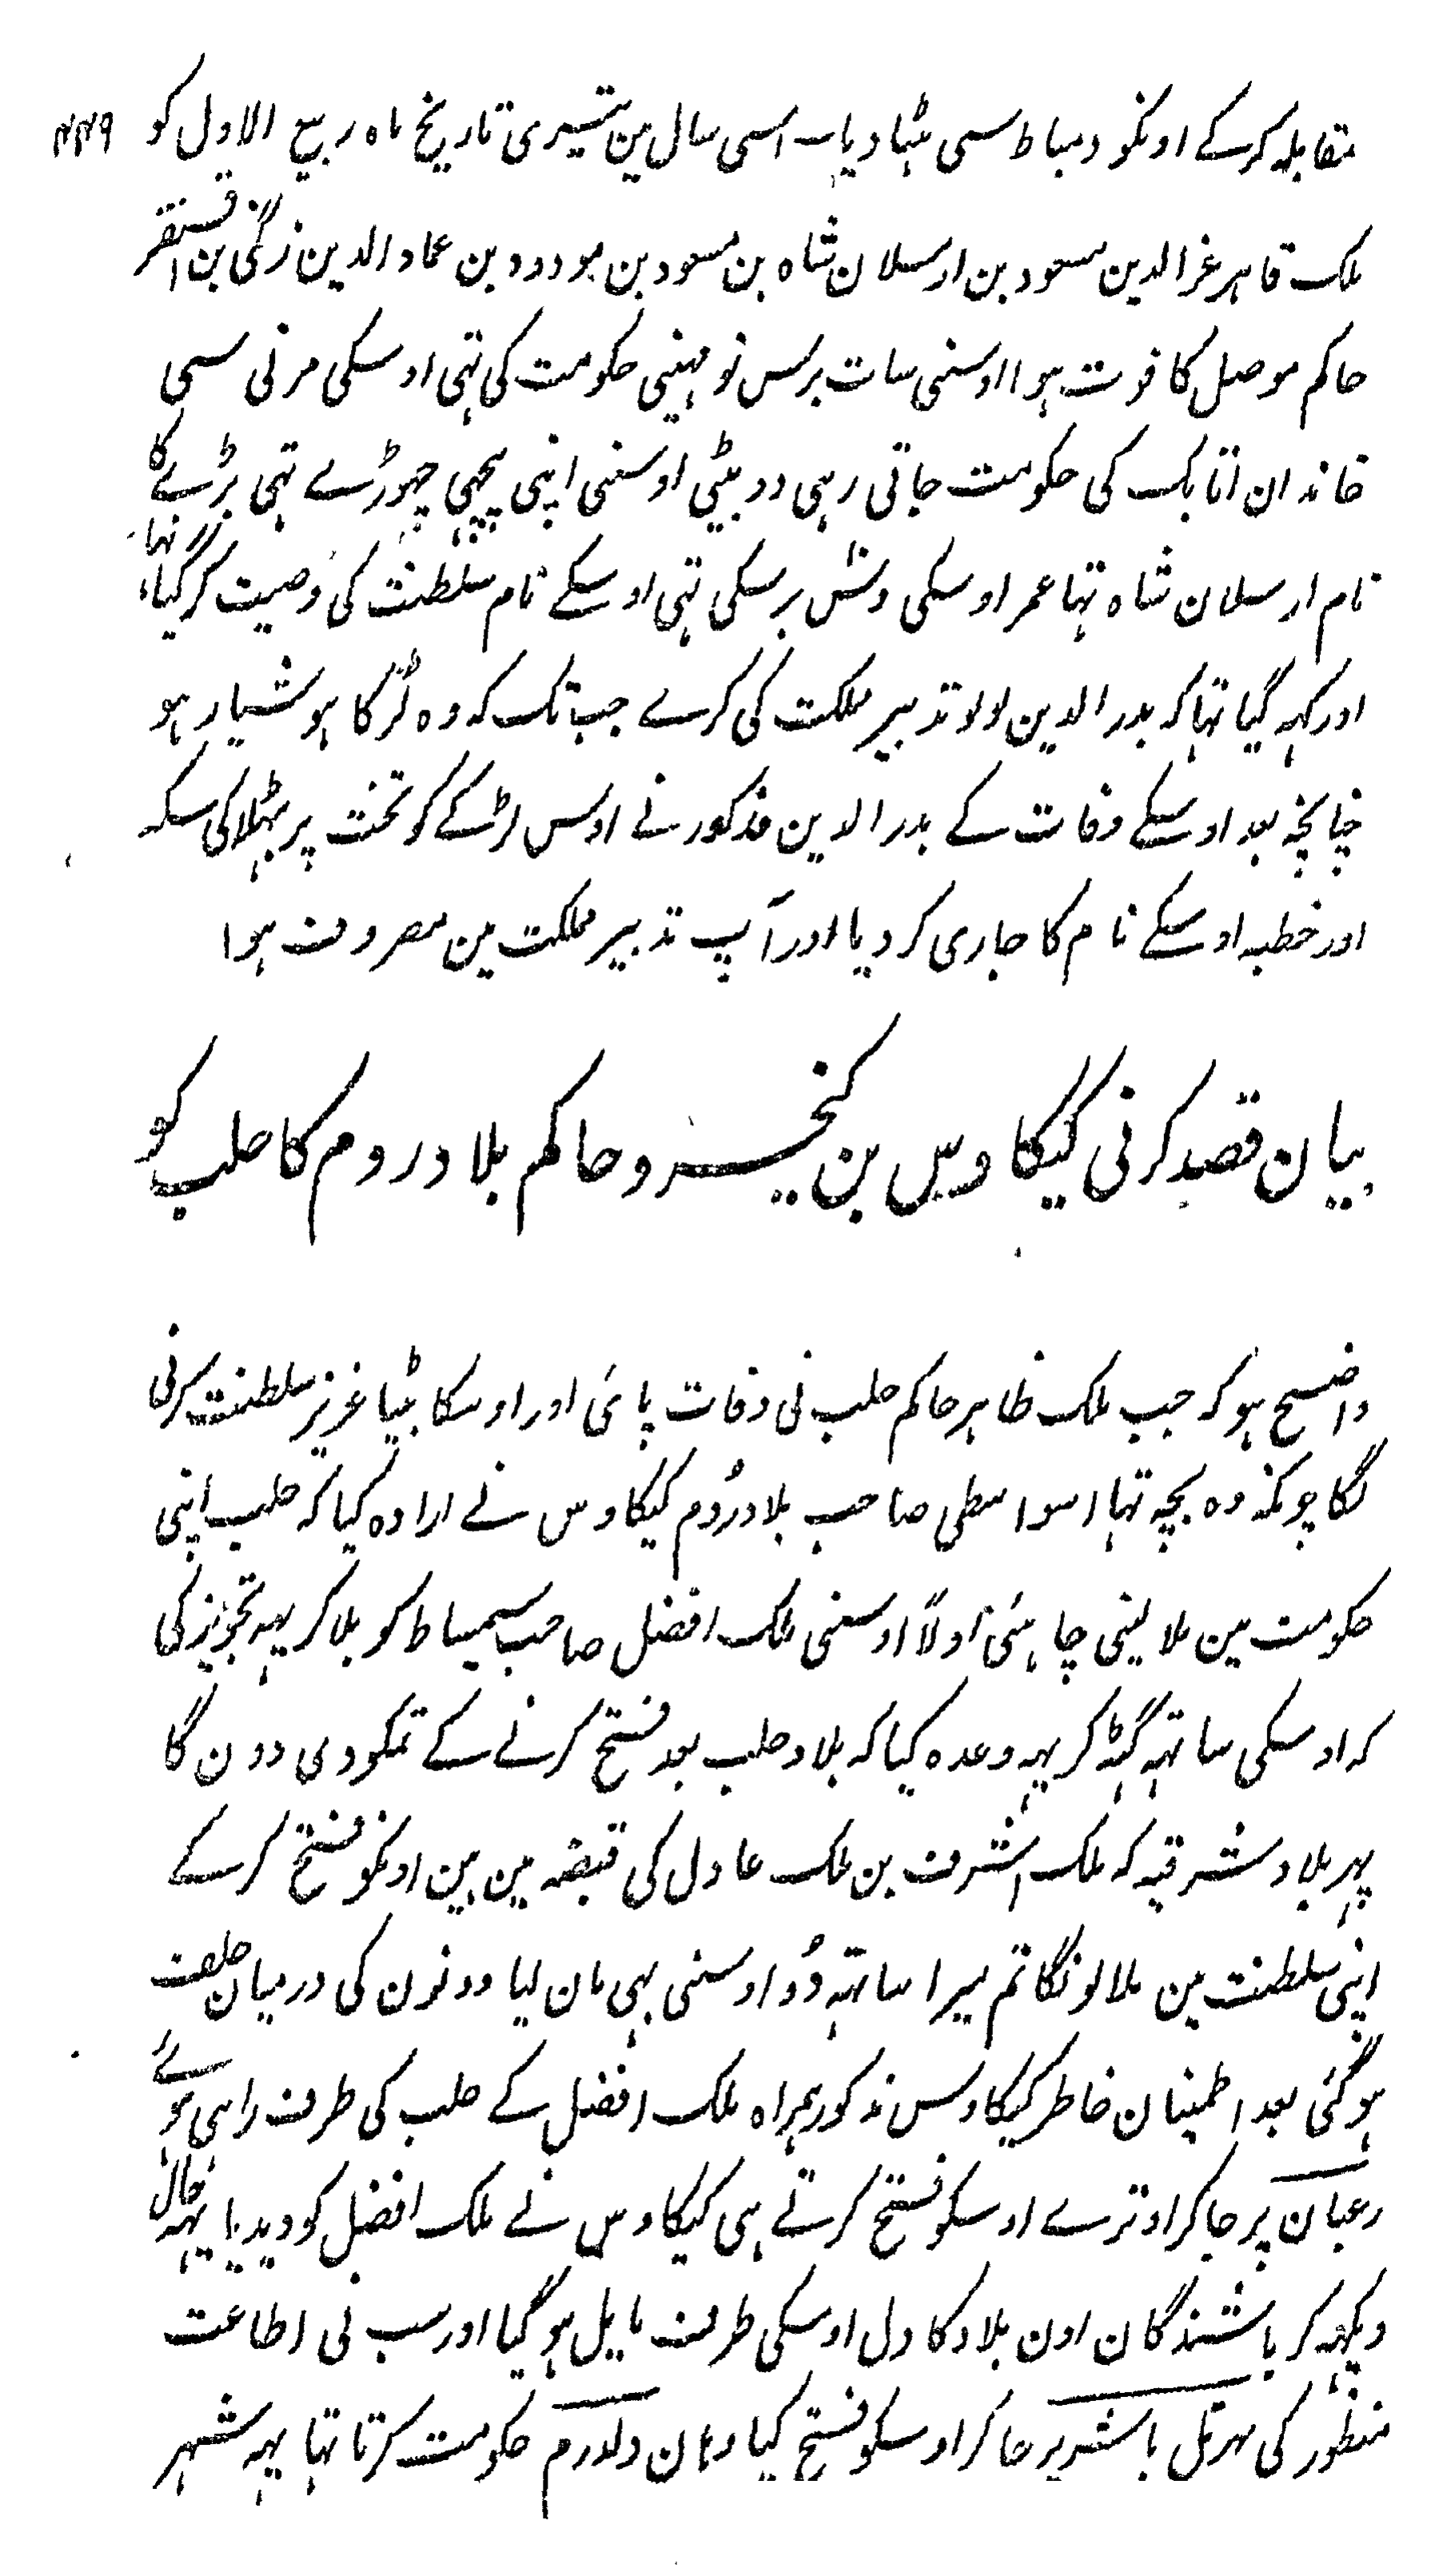 مقابلہ کرکے اونکو دمیاط سی ہٹادیا۔ اسی سال مین تیسری تاریخ ماہ ربیع الاول کو
ملک قاہر عزالدین مسعود بن ارسلان شاہ بن مسعود بن مودود بن عماد الدین زنگی بن اقسنقر
حاکم موصل کا فوت ہوا اوسنی سات برس نو مہینی حکومت کی تہی اوسکی مرنی سی
خاندان اتابک کی حکومت جاتی رہی دو بیٹی اوسنی اپنی پیچہی چہوڑے تہی بڑے کا
نام ارسلان شاہ تہا عمر اوسکی دس برسکی تہی اوسکے نام سلطنت کی وصیت کرگیا تہا
اور کہہ گیا تہا کہ بدر الدین لولو تدبیر مملکت کی کرے جب تک کہ وہ لڑکا ہوشیار ہو
چنانچہ بعد اوسکے وفات کے بدر الدین مذکور نے اوس لڑکے کو تخت پر بہٹلا کی سکہ
اور خطبہ اوسکے نام کا جاری کر دیا اور آپ تدبیر مملکت مین مصروف ہوا
بیان قصد کرنی کیکاوس بن کیخسرو حاکم بلاد روم کا حلب کو
واضح ہو کہ جب ملک ظاہر حاکم حلب نی وفات پائی اور اوسکا بیٹیا عزیز سلطنت کرنی
لگا چونکہ وہ بچہ تہا اسواسطی صاحب بلاد رُوم کیکاوس نے ارادہ کیا کہ حلب اپنی
حکومت مین ملا لینی چاہئی اولاً اوسنی ملک افضل صاحب سمیساط کو بلا کر یہہ تجویز کی
کہ اوسکی ساتہہ گہٹہ کر یہہ وعدہ کیا کہ بلاد حلب بعد فتح کرنے کے تمکو دی دون گا
پہر بلاد شرقیہ کہ ملک اشرف بن ملک عادل کی قبضہ مین ہین اونکو فتح کرکے
اپنی سلطنت مین ملالونگا تم میرا ساتہہ دُو اوسنی بہی مان لیا دونون کی درمیان حلف
ہوگئی بعد اطمینان خاطر کیکاوس مذکور ہمراہ ملک افضل کے حلب کی طرف راہی ہوئے
رعبان پر جا کر اوترے اوسکو فتح کرتے ہی کیکاوس نے ملک افضل کو دیدیا یہہ حال
دیکہہ کر باشندگان اون بلاد کا دل اوسکی طرف مایل ہوگیا اور سب نی اطاعت
منظور کی پہر تل باشر پر جا کر اوسکو فتح کیا وہان دلدرم حکومت کرتا تہا یہہ شہر